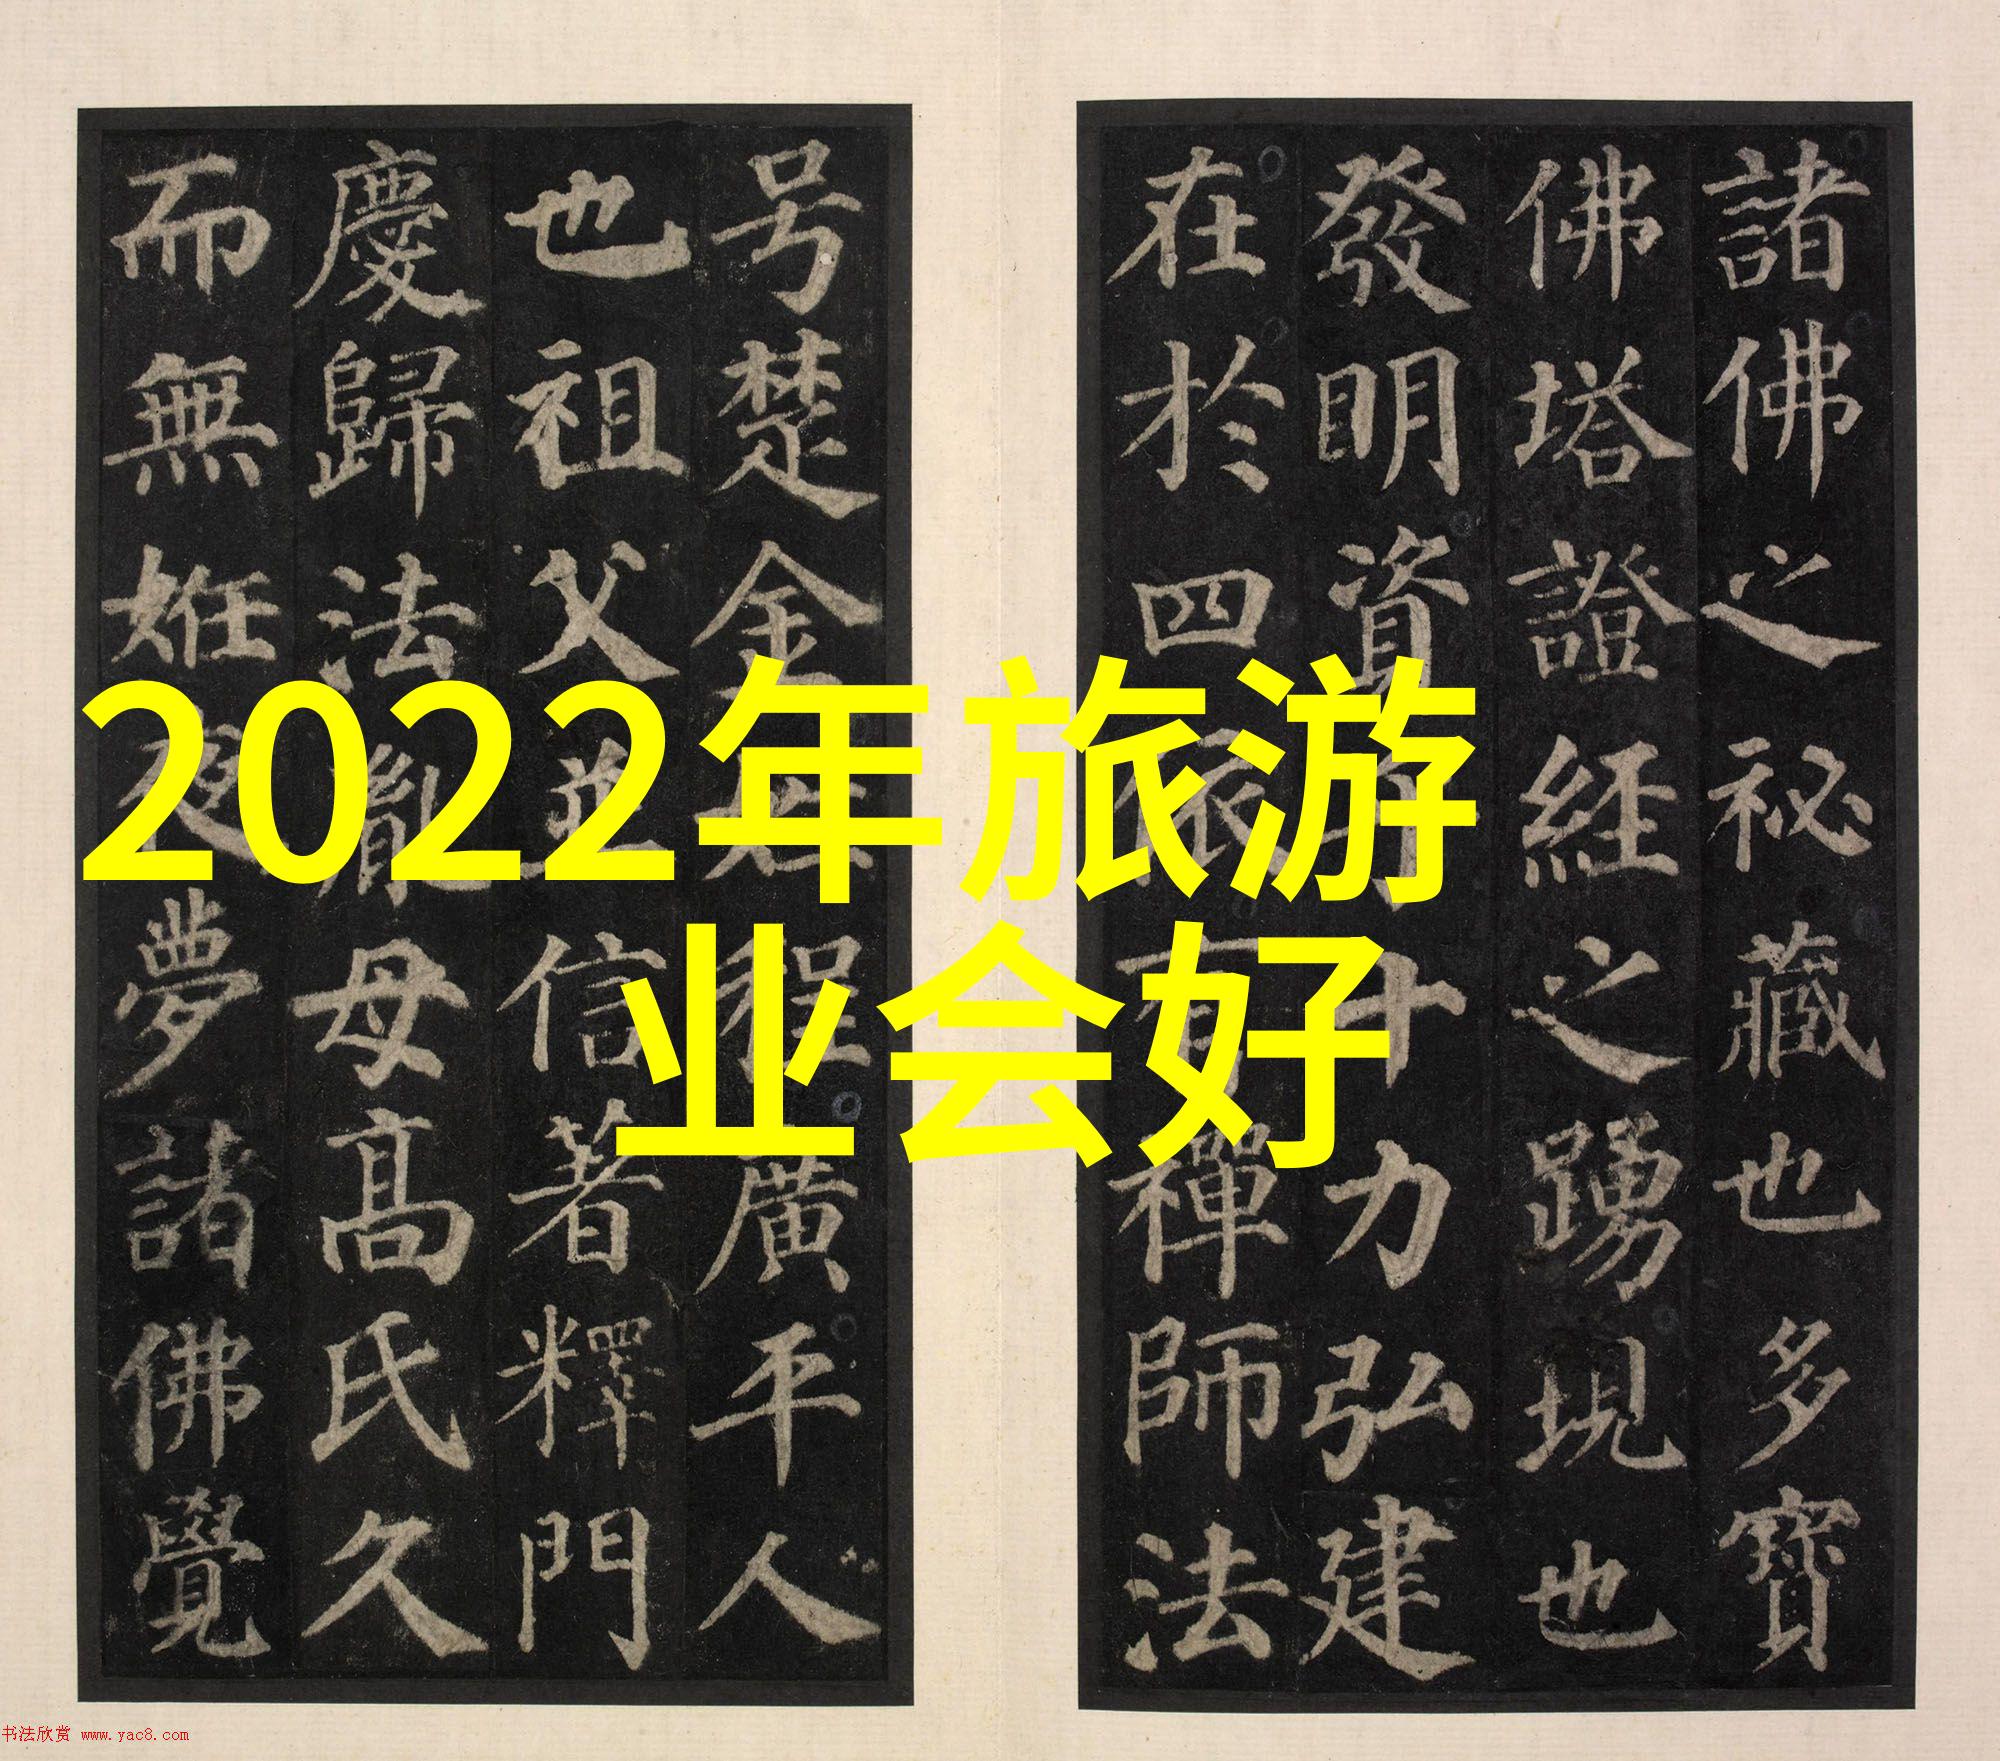 諸佛之祕藏也多寶
佛塔證經之踴現也
發明資
十力弘建
在於四依有禪師法
号楚金
程廣平人
也祖父並信著釋門
慶歸法胤母高氏久
而無姙夜夢諸佛覺
2022年旅游
业会好
书法欣赏 www.yac8.com